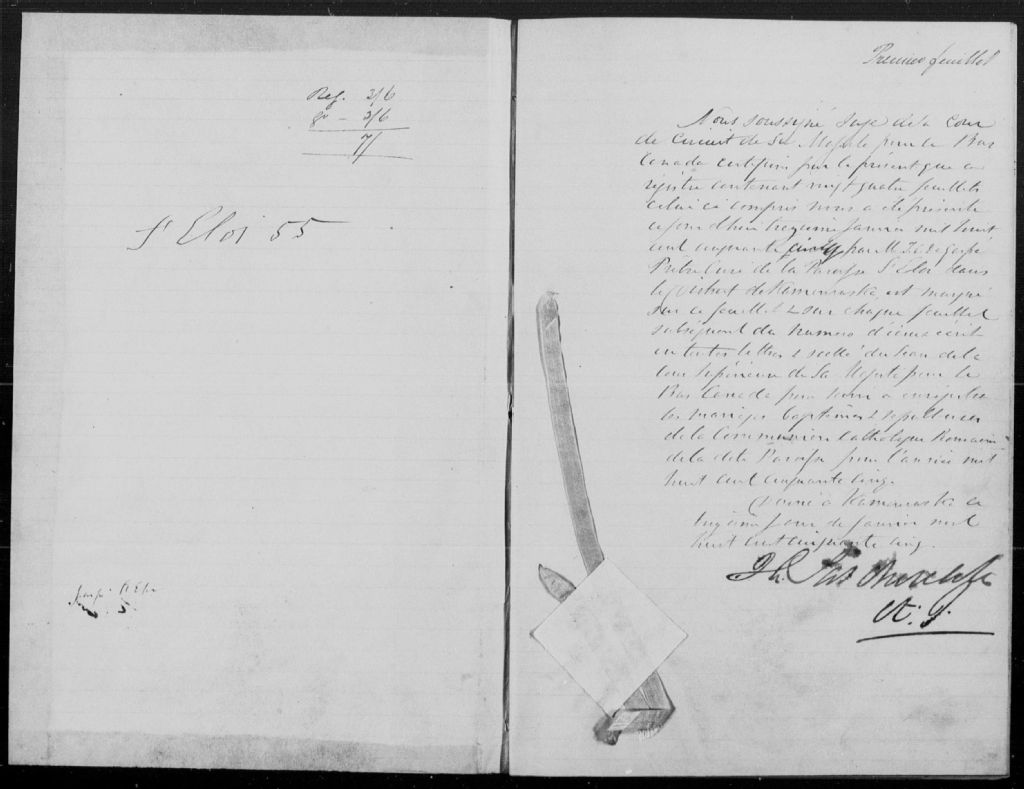 Reg. 3/6
- 3/6
7/
St Eloi 55
Premier feuillet
Nous soussigné Juge de la Cour
de Circuit de Sa Majesté pour le Bas
Canada certifions par le présent que ce
régistre contenant vingt quatre feuillets
celui ci compris nous a été présenté
ce jour d'hui treizième Janvier mil huit
cent cinquante cinq par M
Prêtre Curé de la Paroisse St Eloi dans
le District de Kamouraska, est marqué
sur ce feuillet & sur chaque feuillet
subséquent du numero d'iceux écrit
en toutes lettres & scellé du Sceau de la
Cour Supérieure de Sa Majesté pour le
Bas Canada pour servir a enrégistrer
les mariages baptêmes & sepultures
de la Communion Catholique Romaine
de la dite Paroisse pour l'année mil
huit cent cinquante cinq.
Donné a Kamouraska ce
treizième jour de Janvier mil
huit cent cinquante cinq.